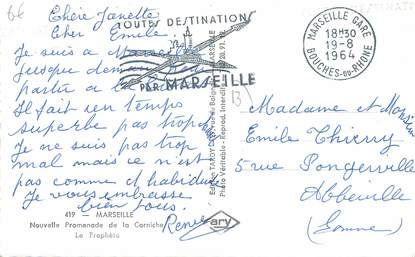 66
Chère Janette
Cher Emile.
Je suis a Marseille
jusque
partir a la
Il fait un temps
superbe pas trop
Je ne suis pas trop
mal mais ce n'est
pas comme d habidude
Je vous embrasse
bien tous.
Renée
419 - MARSEILLE
Nouvelle Promenade de la Corniche
Le Prophète
TOUTES DESTINATIONS
PAR MARSEILLE
MARSEILLE GARE
18H30
19-8
1964
BOUCHES-DU-RHONE
13
ary
Madame et Monsieur
Emile Thierry
5 rue Pongerville
Abbeville
(Somme)